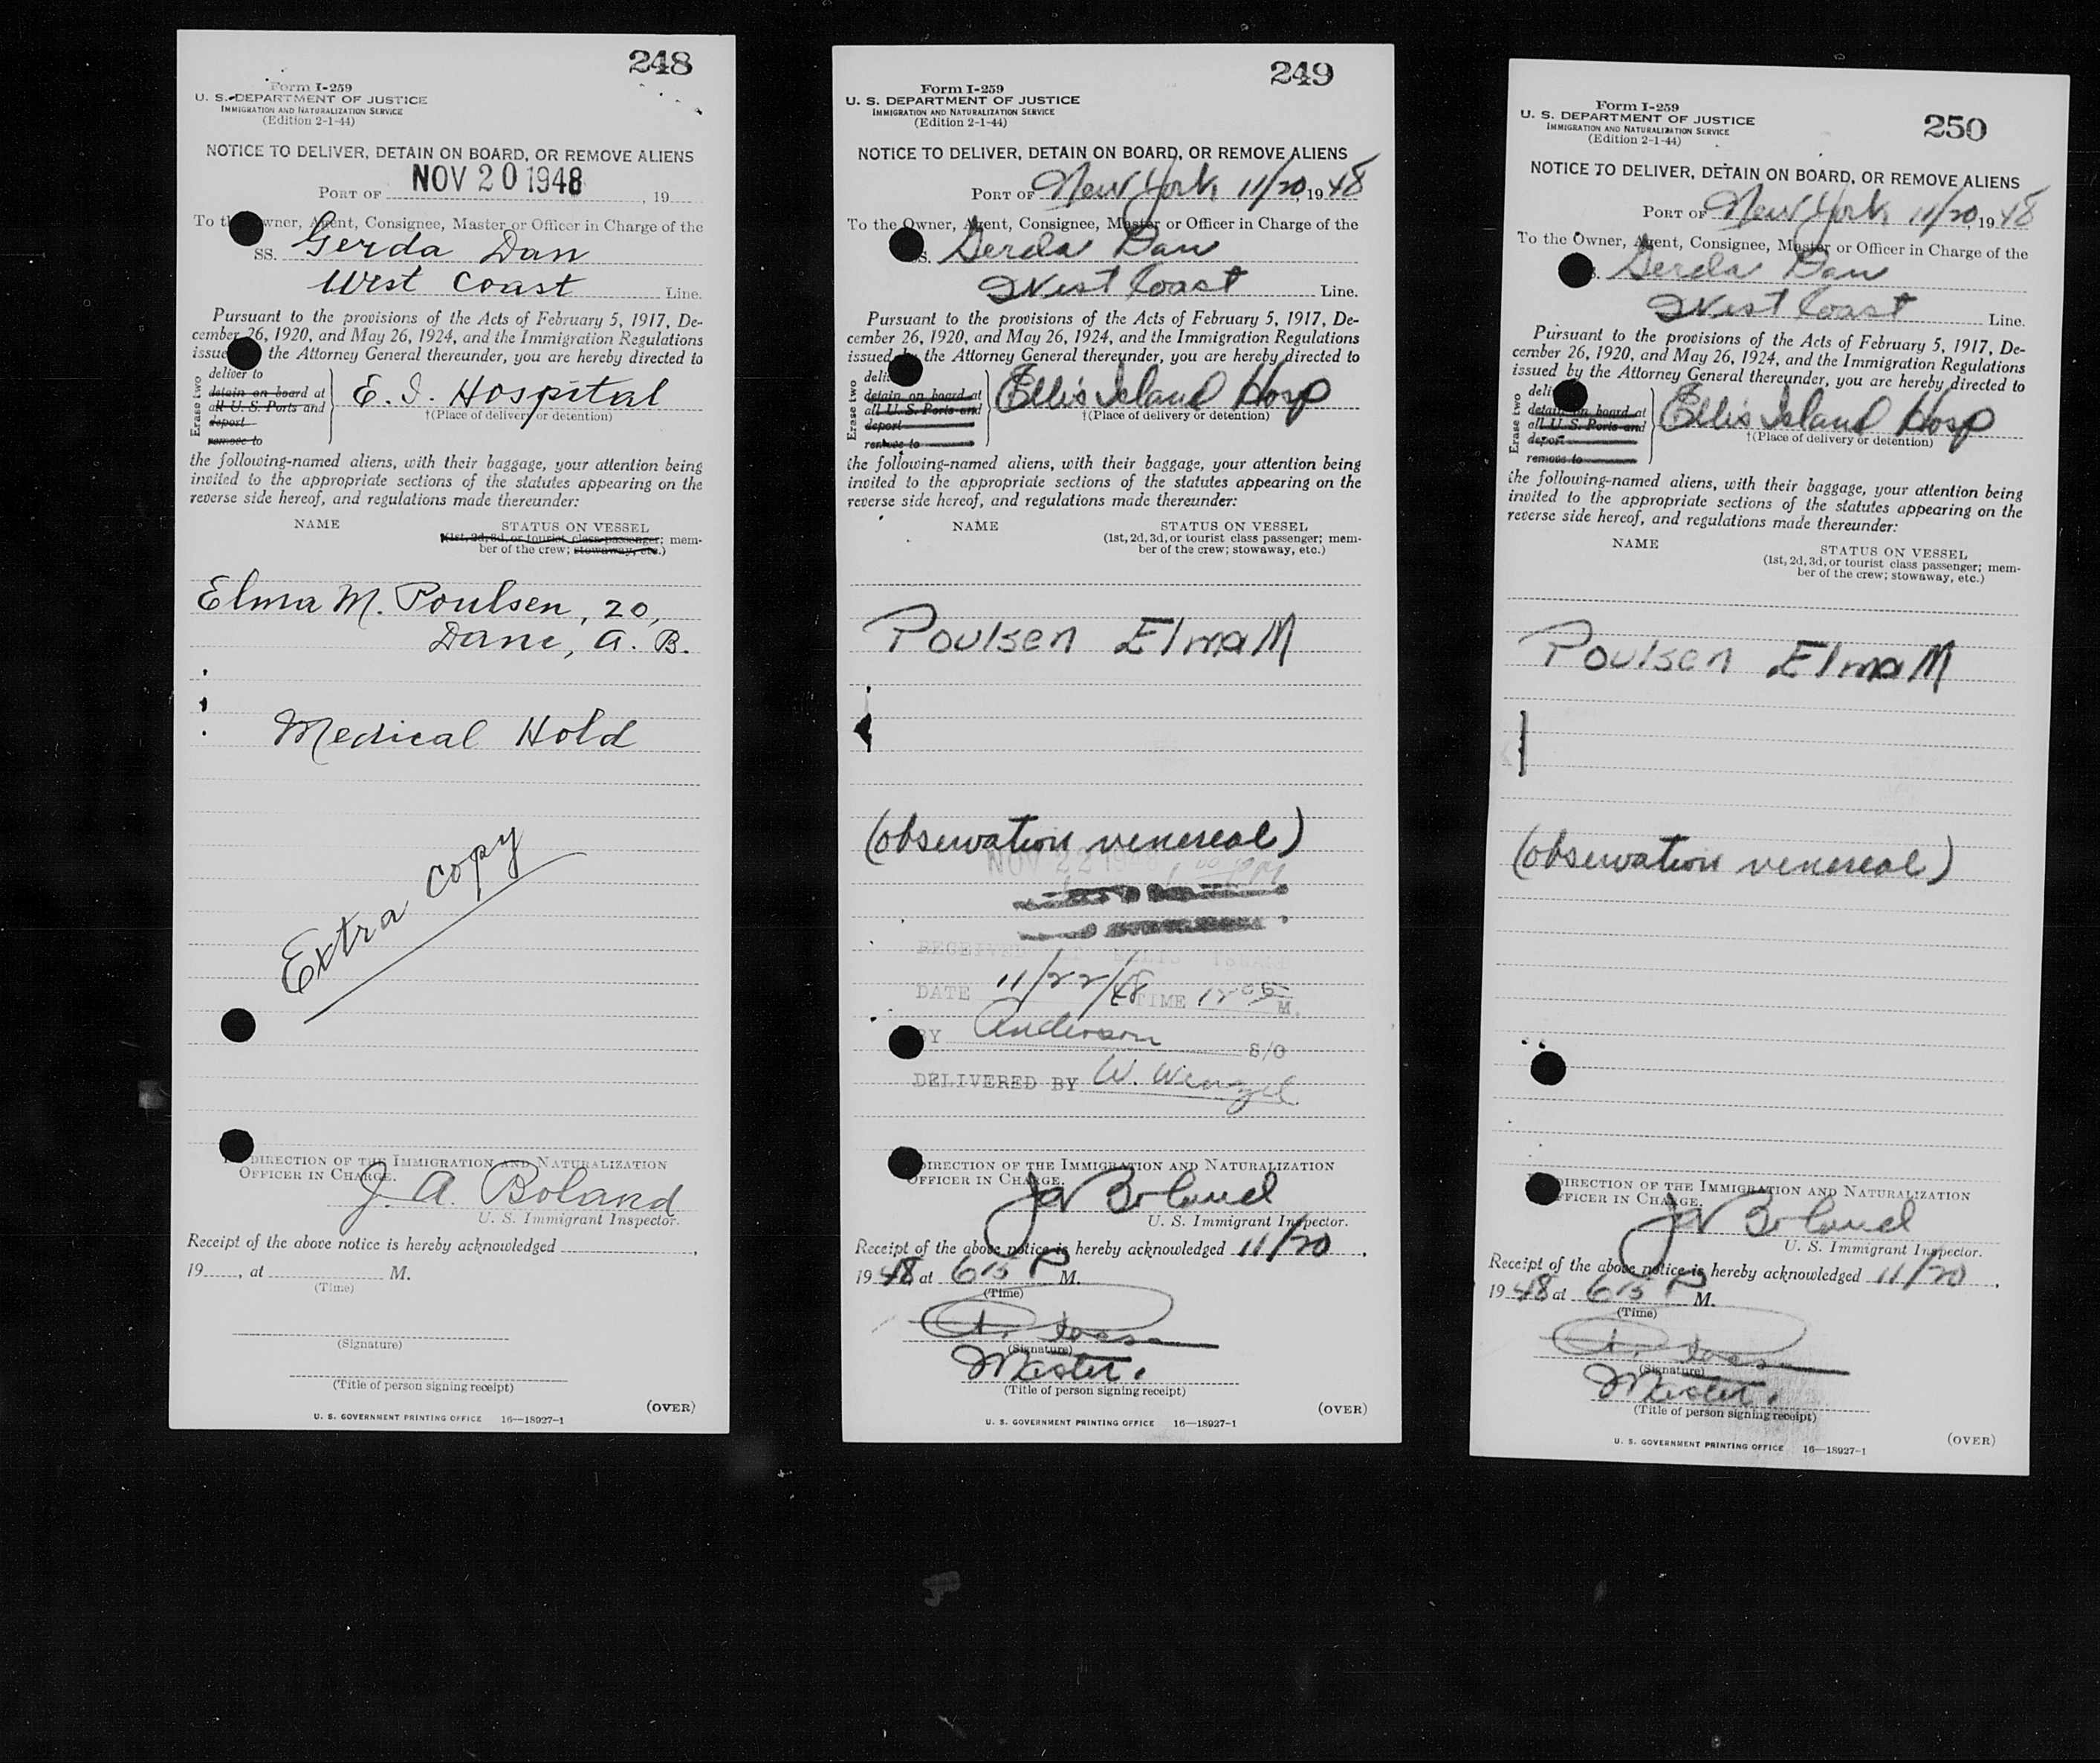 248
Form I-259
U. S. DEPARTMENT OF JUSTICE
IMMIGRATION AND NATURALIZATION SERVICE
(Edition 2-1-44)
NOTICE TO DELIVER, DETAIN ON BOARD, OR REMOVE ALIENS
PORT OF NOV 20 1948, 19
To the Owner, Agent, Consignee, Master or Officer in Charge of the
SS. Gerda Dan
West Coast Line.
Pursuant to the provisions of the Acts of February 5, 1917, De-
cember 26, 1920, and May 26, 1924, and the Immigration Regulations
issued the Attorney General thereunder, you are hereby directed to
Erase two
deliver to
detain on board at
all U. S. Ports and
deport
remove to
E. I. Hospital
†(Place of delivery or detention)
the following-named aliens, with their baggage, your attention being
invited to the appropriate sections of the statutes appearing on the
reverse side hereof, and regulations made thereunder:
NAME STATUS ON VESSEL
(1st, 2d, 3d, or tourist class passenger; mem-
ber of the crew; stowaway, etc.)
Elma M. Poulsen, 20,
Dane, A. B.
Medical Hold
Extra copy
DIRECTION OF THE IMMIGRATION AND NATURALIZATION
OFFICER IN CHARGE.
J. A. Boland
U. S. Immigrant Inspector.
Receipt of the above notice is hereby acknowledged ,
19 , at M.
(Time)
(Signature)
(Title of person signing receipt)
(OVER)
U. S. GOVERNMENT PRINTING OFFICE 16—18927-1
249
Form I-259
U. S. DEPARTMENT OF JUSTICE
IMMIGRATION AND NATURALIZATION SERVICE
(Edition 2-1-44)
NOTICE TO DELIVER, DETAIN ON BOARD, OR REMOVE ALIENS
PORT OF New York 11/20, 1948
To the Owner, Agent, Consignee, Master or Officer in Charge of the
S. Gerda Dan
West Coast Line.
Pursuant to the provisions of the Acts of February 5, 1917, De-
cember 26, 1920, and May 26, 1924, and the Immigration Regulations
issued by the Attorney General thereunder, you are hereby directed to
Erase two
deli
detain on board at
all U. S. Ports and
deport
remove to
Ellis Island Hosp
†(Place of delivery or detention)
the following-named aliens, with their baggage, your attention being
invited to the appropriate sections of the statutes appearing on the
reverse side hereof, and regulations made thereunder:
NAME STATUS ON VESSEL
(1st, 2d, 3d, or tourist class passenger; mem-
ber of the crew; stowaway, etc.)
Poulsen Elma M
(observation venereal)
NOV 22 19
RECEIVED ELLIS ISLAND
DATE 11/22/48 TIME 12 05 M.
BY Anderson S/O
DELIVERED BY W. Wenzel
DIRECTION OF THE IMMIGRATION AND NATURALIZATION
OFFICER IN CHARGE.
JA Boland
U. S. Immigrant Inspector.
Receipt of the above notice is hereby acknowledged 11/20,
1948 at 615 P M.
(Time)
(Signature)
Master.
(Title of person signing receipt)
(OVER)
U. S. GOVERNMENT PRINTING OFFICE 16—18927-1
250
Form I-259
U. S. DEPARTMENT OF JUSTICE
IMMIGRATION AND NATURALIZATION SERVICE
(Edition 2-1-44)
NOTICE TO DELIVER, DETAIN ON BOARD, OR REMOVE ALIENS
PORT OF New York 11/20, 1948
To the Owner, Agent, Consignee, Master or Officer in Charge of the
Gerda Dan
West Coast Line.
Pursuant to the provisions of the Acts of February 5, 1917, De-
cember 26, 1920, and May 26, 1924, and the Immigration Regulations
issued by the Attorney General thereunder, you are hereby directed to
Erase two
deli
detain on board at
all U. S. Ports and
deport
remove to
Ellis Island Hosp
†(Place of delivery or detention)
the following-named aliens, with their baggage, your attention being
invited to the appropriate sections of the statutes appearing on the
reverse side hereof, and regulations made thereunder:
NAME STATUS ON VESSEL
(1st, 2d, 3d, or tourist class passenger; mem-
ber of the crew; stowaway, etc.)
Poulsen Elma M
(observation venereal)
DIRECTION OF THE IMMIGRATION AND NATURALIZATION
OFFICER IN CHARGE.
JA Boland
U. S. Immigrant Inspector.
Receipt of the above notice is hereby acknowledged 11/20,
1948 at 615 P M.
(Time)
(Signature)
Master.
(Title of person signing receipt)
(OVER)
U. S. GOVERNMENT PRINTING OFFICE 16—18927-1